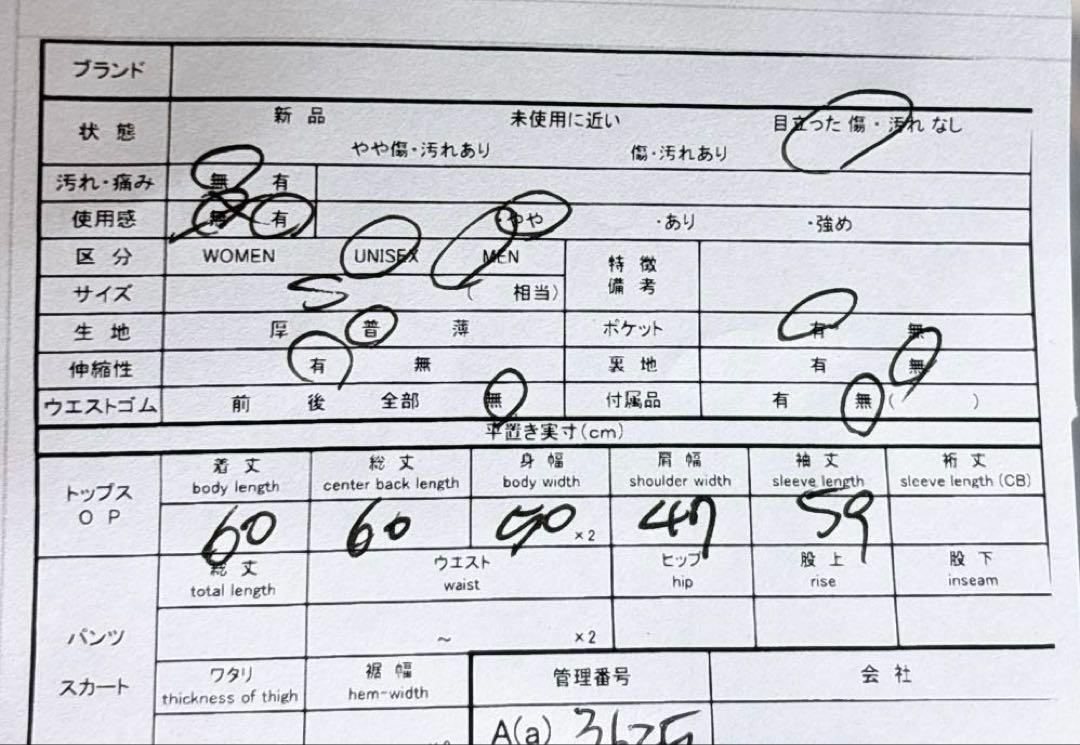 ブランド
状態 新品 未使用に近い 目立った傷・汚れなし
やや傷・汚れあり 傷・汚れあり
汚れ・痛み 無 有
使用感 無 有 ・やや ・あり ・強め
区分 WOMEN UNISEX MEN 特徴
備考
サイズ S ( 相当)
生地 厚 普 薄 ポケット 有 無
伸縮性 有 無 裏地 有 無
ウエストゴム 前 後 全部 無 付属品 有 無 ( )
平置き実寸(cm)
トップス
OP
着丈 総丈 身幅 肩幅 袖丈 裄丈
body length center back length body width shoulder width sleeve length sleeve length (CB)
60 60 50 ×2 47 59
総丈 ウエスト ヒップ 股上 股下
total length waist hip rise inseam
パンツ ~ ×2
スカート
ワタリ 裾幅 管理番号 会社
thickness of thigh hem-width
A(a)